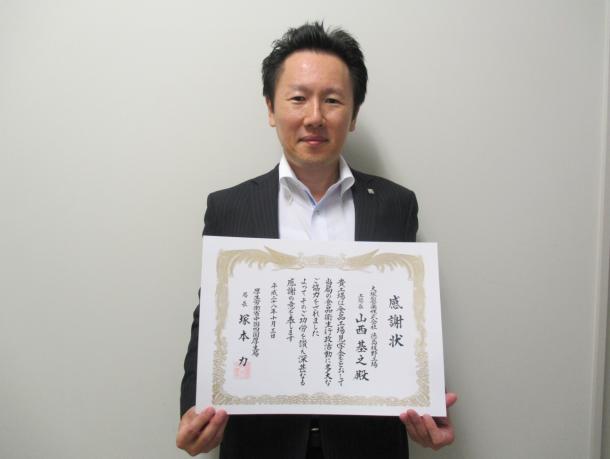 感謝状
大塚製薬株式会社 徳島板野工場
工場長 山西基之殿
貴工場は食品工場見学会をとおして
当局の食品衛生行政活動に多大な
ご協力をされました
よってそのご功労を讃え深甚なる
感謝の意を表します
平成二十八年十月三日
厚生労働省中国四国厚生局
局長 塚本 力